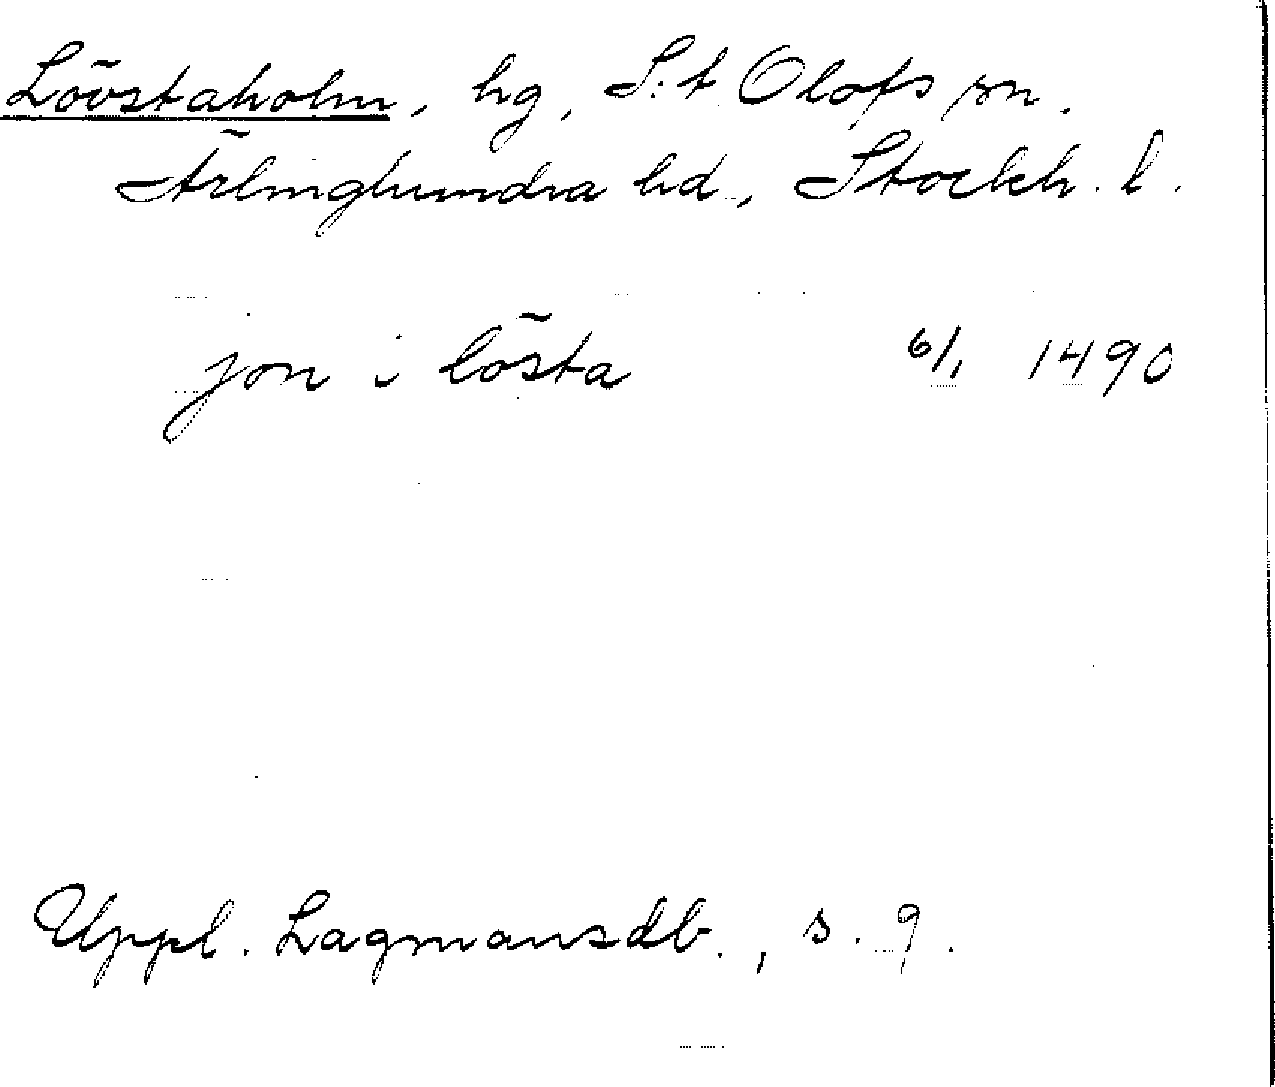 Lövstaholm, hg, S:t Olofs sn.
Ärlinghundra hd., Stockh. l.
jon i lösta 6/1 1490
Uppl. Lagmansdb., s. 9.